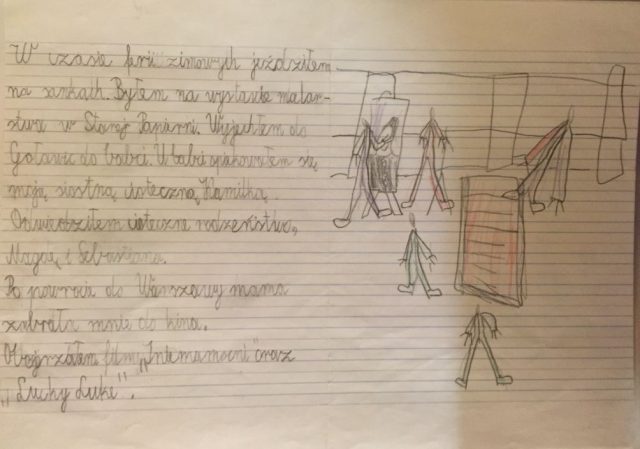 W czasie ferii zimowych jeździłem
na sankach. Byłem na wystawie malar-
stwa w Starej Papierni. Wyjechłem do
Goławic do babci. U babci opiekowałem się
moją siostrą cioteczną Kamilką.
Odwiedziłem cioteczne rodzeństwo,
Magdę i Sebastiana.
Po powrocie do Warszawy mama
zabrała mnie do kina.
Obejrzałem film „Iniemamocni" oraz
„Lucky Luke".